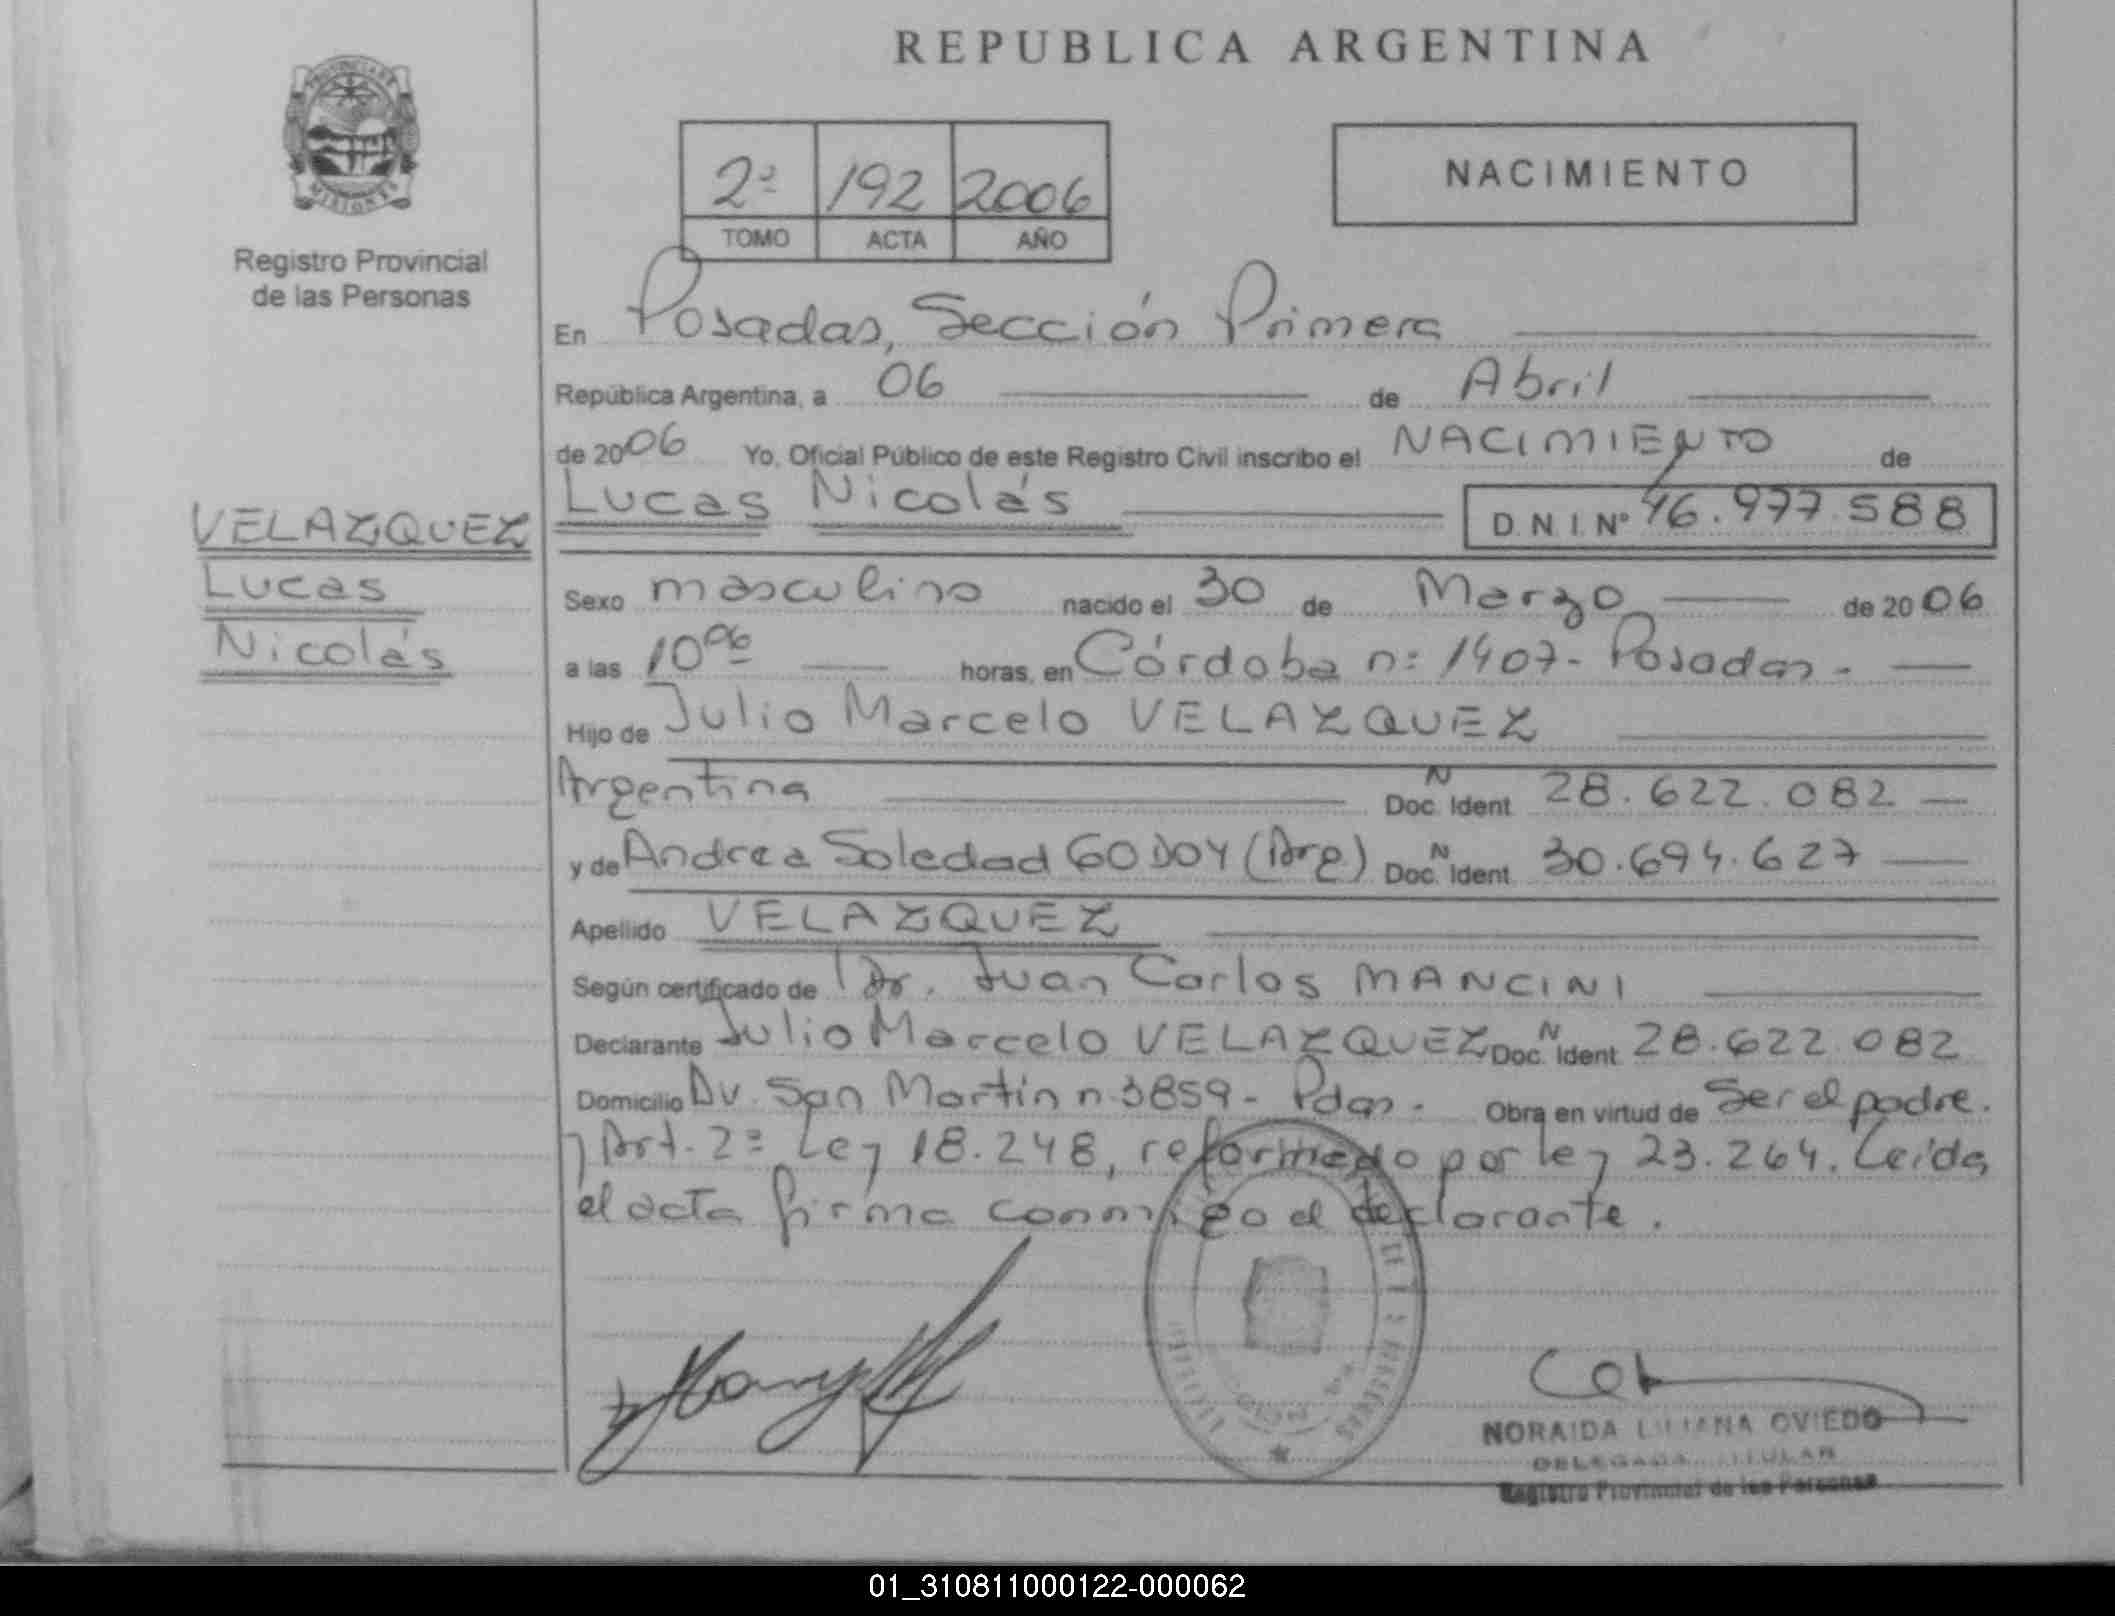 REPUBLICA ARGENTINA
PROVINCIA DE
MISIONES
Registro Provincial
de las Personas
2ª 192 2006
TOMO ACTA AÑO
NACIMIENTO
En Posadas, Sección Primera
República Argentina, a 06 de Abril
de 2006 Yo, Oficial Público de este Registro Civil inscribo el NACIMIENTO de
Lucas Nicolás D.N.I. Nº 46.977.588
VELAZQUEZ
Lucas
Nicolás
Sexo masculino nacido el 30 de Marzo de 2006
a las 10 06 horas, en Córdoba n: 1407- Posadas.
Hijo de Julio Marcelo VELAZQUEZ
Argentina N Doc. Ident. 28.622.082
y de Andrea Soledad GODOY (Arg) N Doc. Ident. 30.694.627
Apellido VELAZQUEZ
Según certificado de Dr. Juan Carlos MANCINI
Declarante Julio Marcelo VELAZQUEZ N Doc. Ident. 28.622.082
Domicilio Av. San Martín n 3859- Pdas. Obra en virtud de Ser el padre.
y Art. 2º Ley 18.248, reformado por ley 23.264. Leída
el acta firma conmigo el declarante.
NORAIDA LILIANA OVIEDO
DELEGADA TITULAR
Registro Provincial de las Personas
01_310811000122-000062